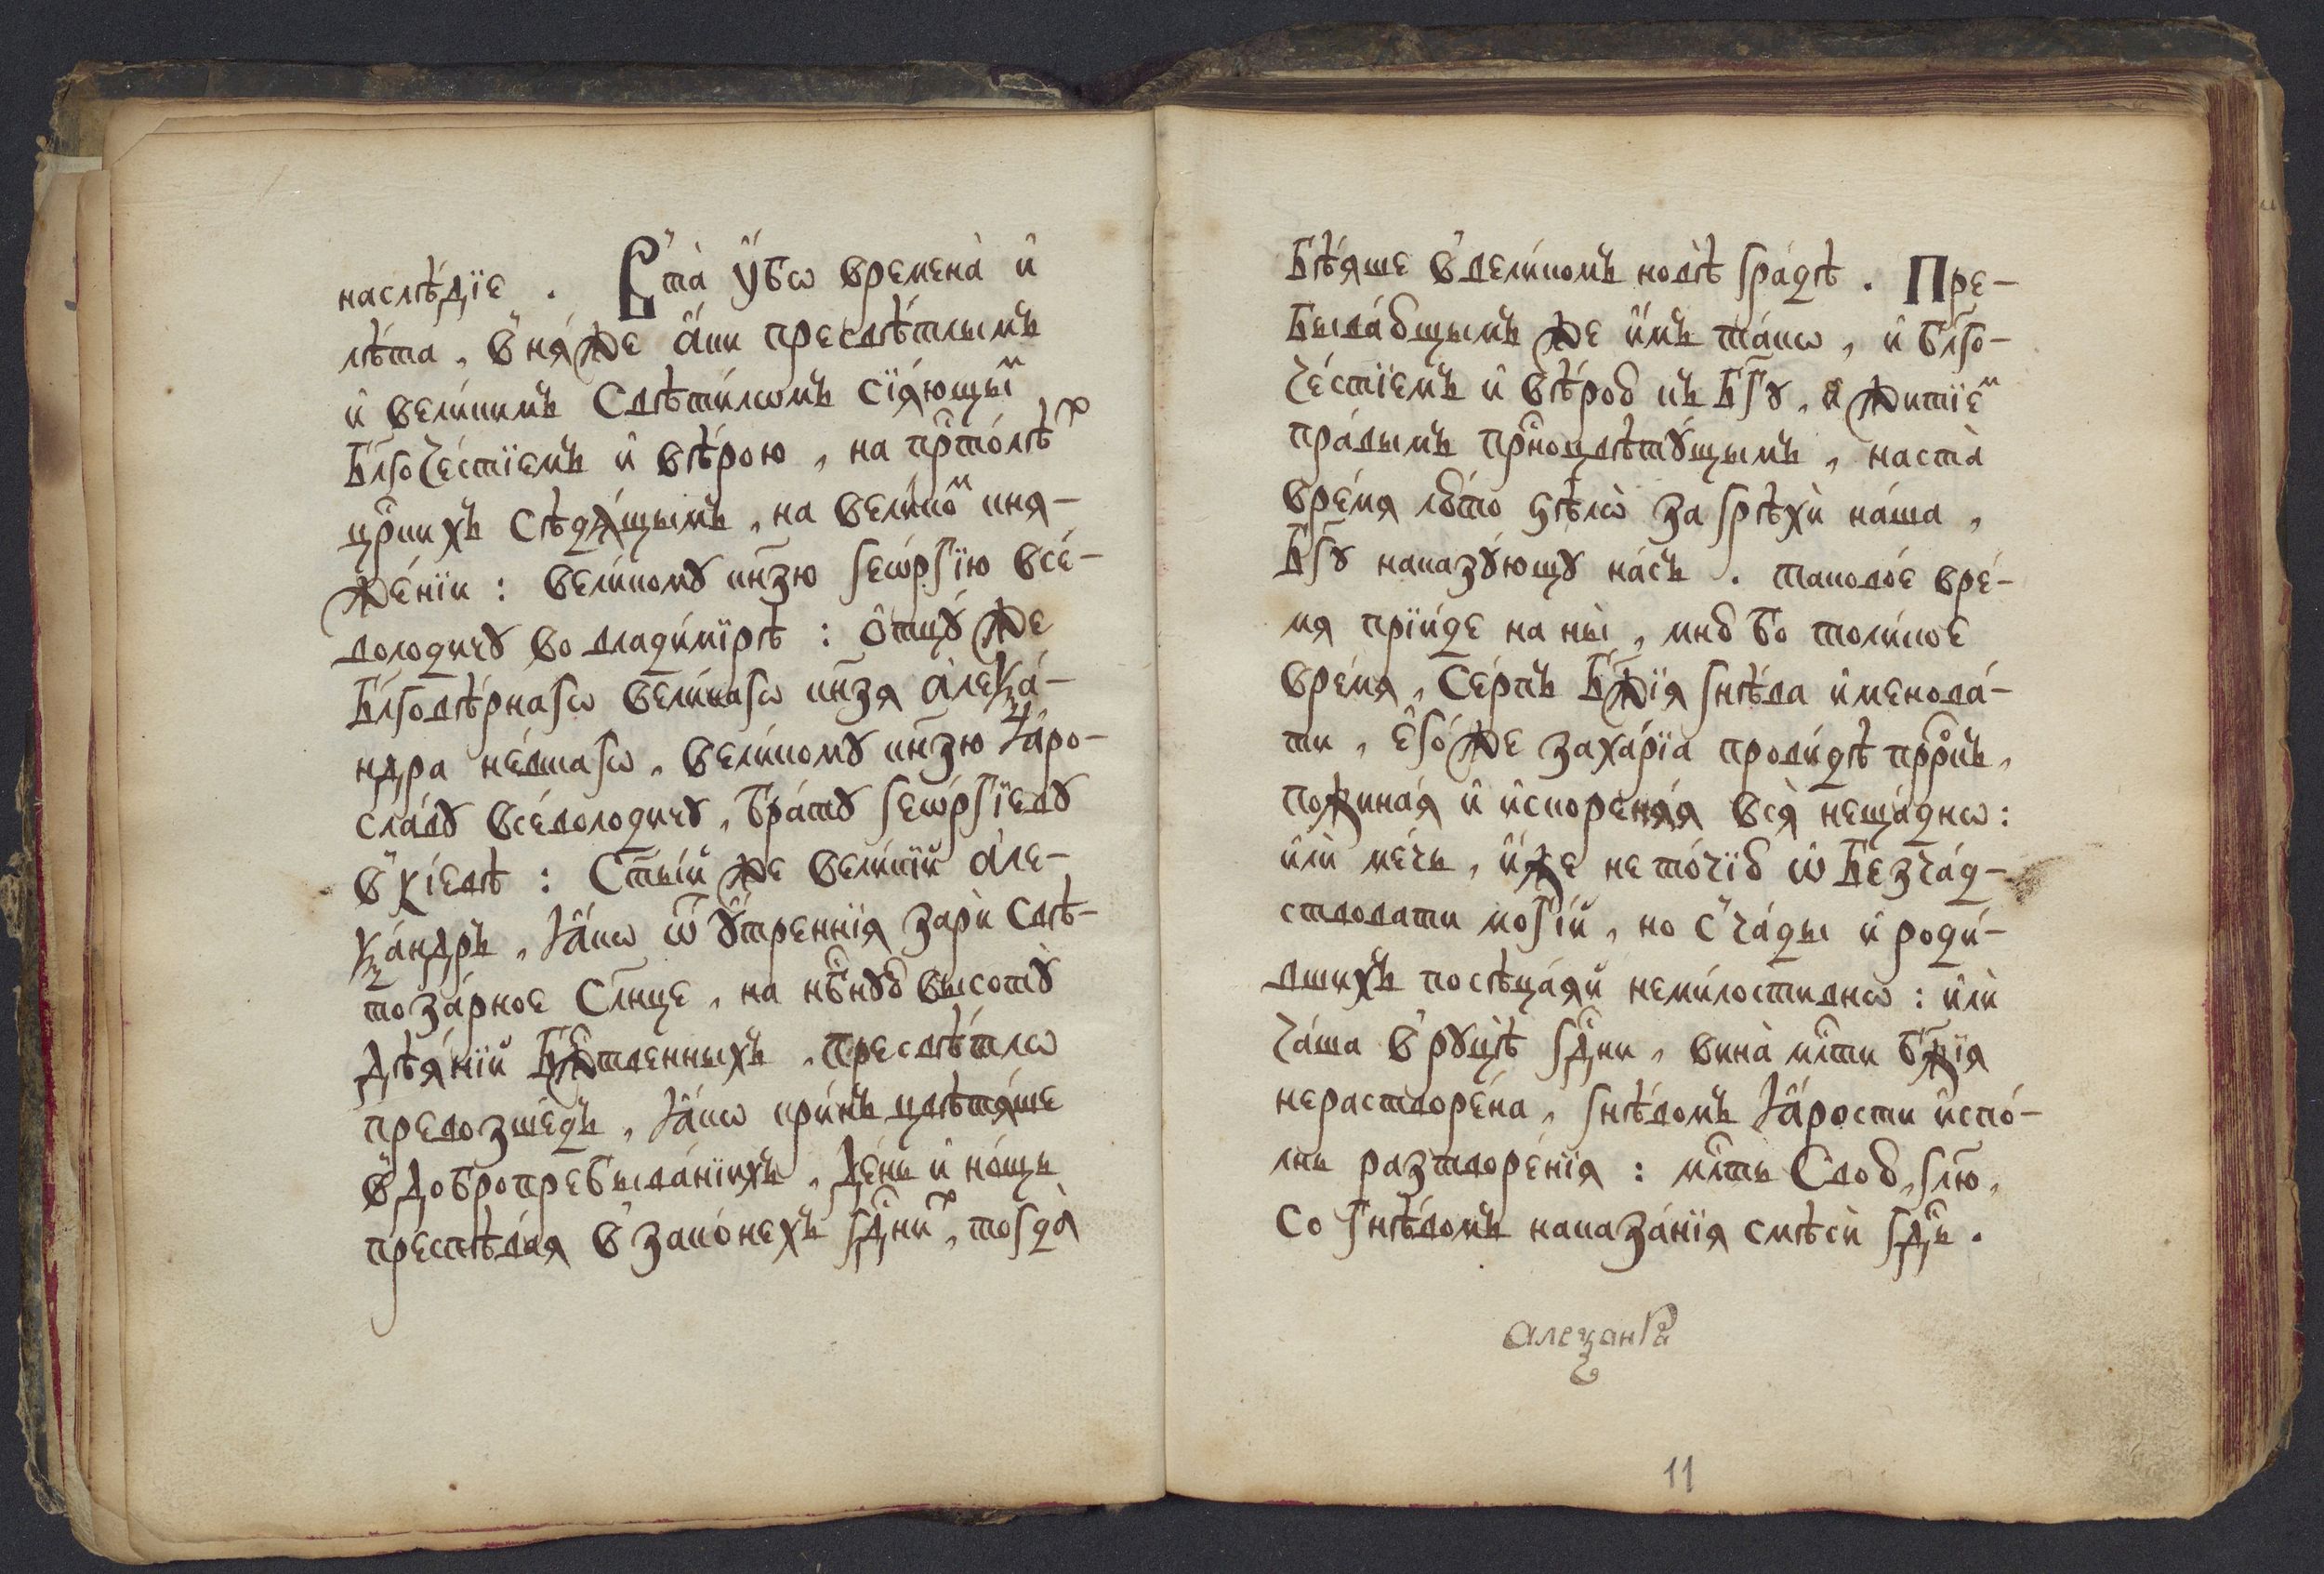 наслѣ́дїе . В̾ та̀ ᲂу҆́бѡ времена̀ и҆
лѣ́та , в̾ нѧ́же а҆́ки пресвѣ́тлымъ
и҆ вели́кимъ свѣти́лѡмъ сїѧ́ющыⷨ
бл҃гоче́стїемъ и҆ вѣ́рою , на прⷭ҇то́лѣⷯ
црⷭ҇кихъ сѣдѧ́щымъ , на вели́коⷨ кнѧ-
же́нїи : вели́комꙋ кн҃зю геѡ́ргїю все́-
володичꙋ во влади́мїрѣ : ѻ҆тцꙋ́ же
бл҃говѣ́рнагѡ вели́кагѡ кн҃зѧ а҆леѯа́-
ндра не́вшагѡ , вели́комꙋ кн҃зю ꙗ҆ро-
сла́вꙋ все́володичꙋ , бра́тꙋ геѡ́ргїевꙋ
в̾ кі́евѣ : ст҃ы́й же вели́кїй а҆ле-
ѯа́ндръ , ꙗ҆́кѡ ѿ ᲂу҆́треннїѧ зарѝ свѣ-
тоза́рное сл҃нце , на нбⷭ҇нꙋю высотꙋ̀
дѣѧ́нїй бж҃твенныхъ , пресвѣ́тлѡ
превозше́дъ , ꙗ҆́кѡ кри́нъ цвѣтѧ́ше
в̾ добропребыва́нїихъ , де́нь и҆ но́щь
преспѣва́ѧ в̾ зако́нехъ гдⷭ҇ниⷯ , тогда̀
бѣ́ѧше в̾ вели́комъ новѣ̀ гра́дѣ . Пре-
быва́ющымъ же и҆̀мъ та́кѡ , и҆ бл҃го-
че́стїемъ и҆ вѣ́рою къ бг҃ꙋ , и҆ житїеⷨ
пра́вымъ прⷭ҇ноцвѣтꙋ́щымъ , наста̀
вре́мѧ лю́то ѕѣлѡ̀ за грѣхѝ на́ша ,
бг҃ꙋ наказꙋ́ющꙋ на́съ . таково́е вре́-
мѧ прїи́де на ны̀ , мню̀ бо толи́кое
вре́мѧ , се́рпъ бж҃їѧ гнѣ́ва и҆менова́-
ти , є҆го́же заха́рїа прови́дѣ прⷪ҇ро́къ ,
пожина́ѧ и҆ и҆скоренѧ́ѧ всѧ̀ неща́днѡ :
и҆лѝ ме́чь , и҆́же не то́чїю ѡ҆ безча́д-
ствовати моѓій , но с̾ ча́ды и҆ роди́-
вшихъ посѣца́ѧй неми́лостивнѡ : и҆лѝ
ча́ша в̾ рꙋцѣ̀ гдⷭ҇ни , вина̀ млⷭ҇ти бж҃їѧ
нерастворе́на , гнѣ́вомъ ꙗ҆́рости и҆спо́-
лнь разтворе́нїѧ : млⷭ҇ть свою̀ , гл҃ю ,
со гнѣ́вомъ наказа́нїѧ смѣсѝ гдⷭ҇ь .
11